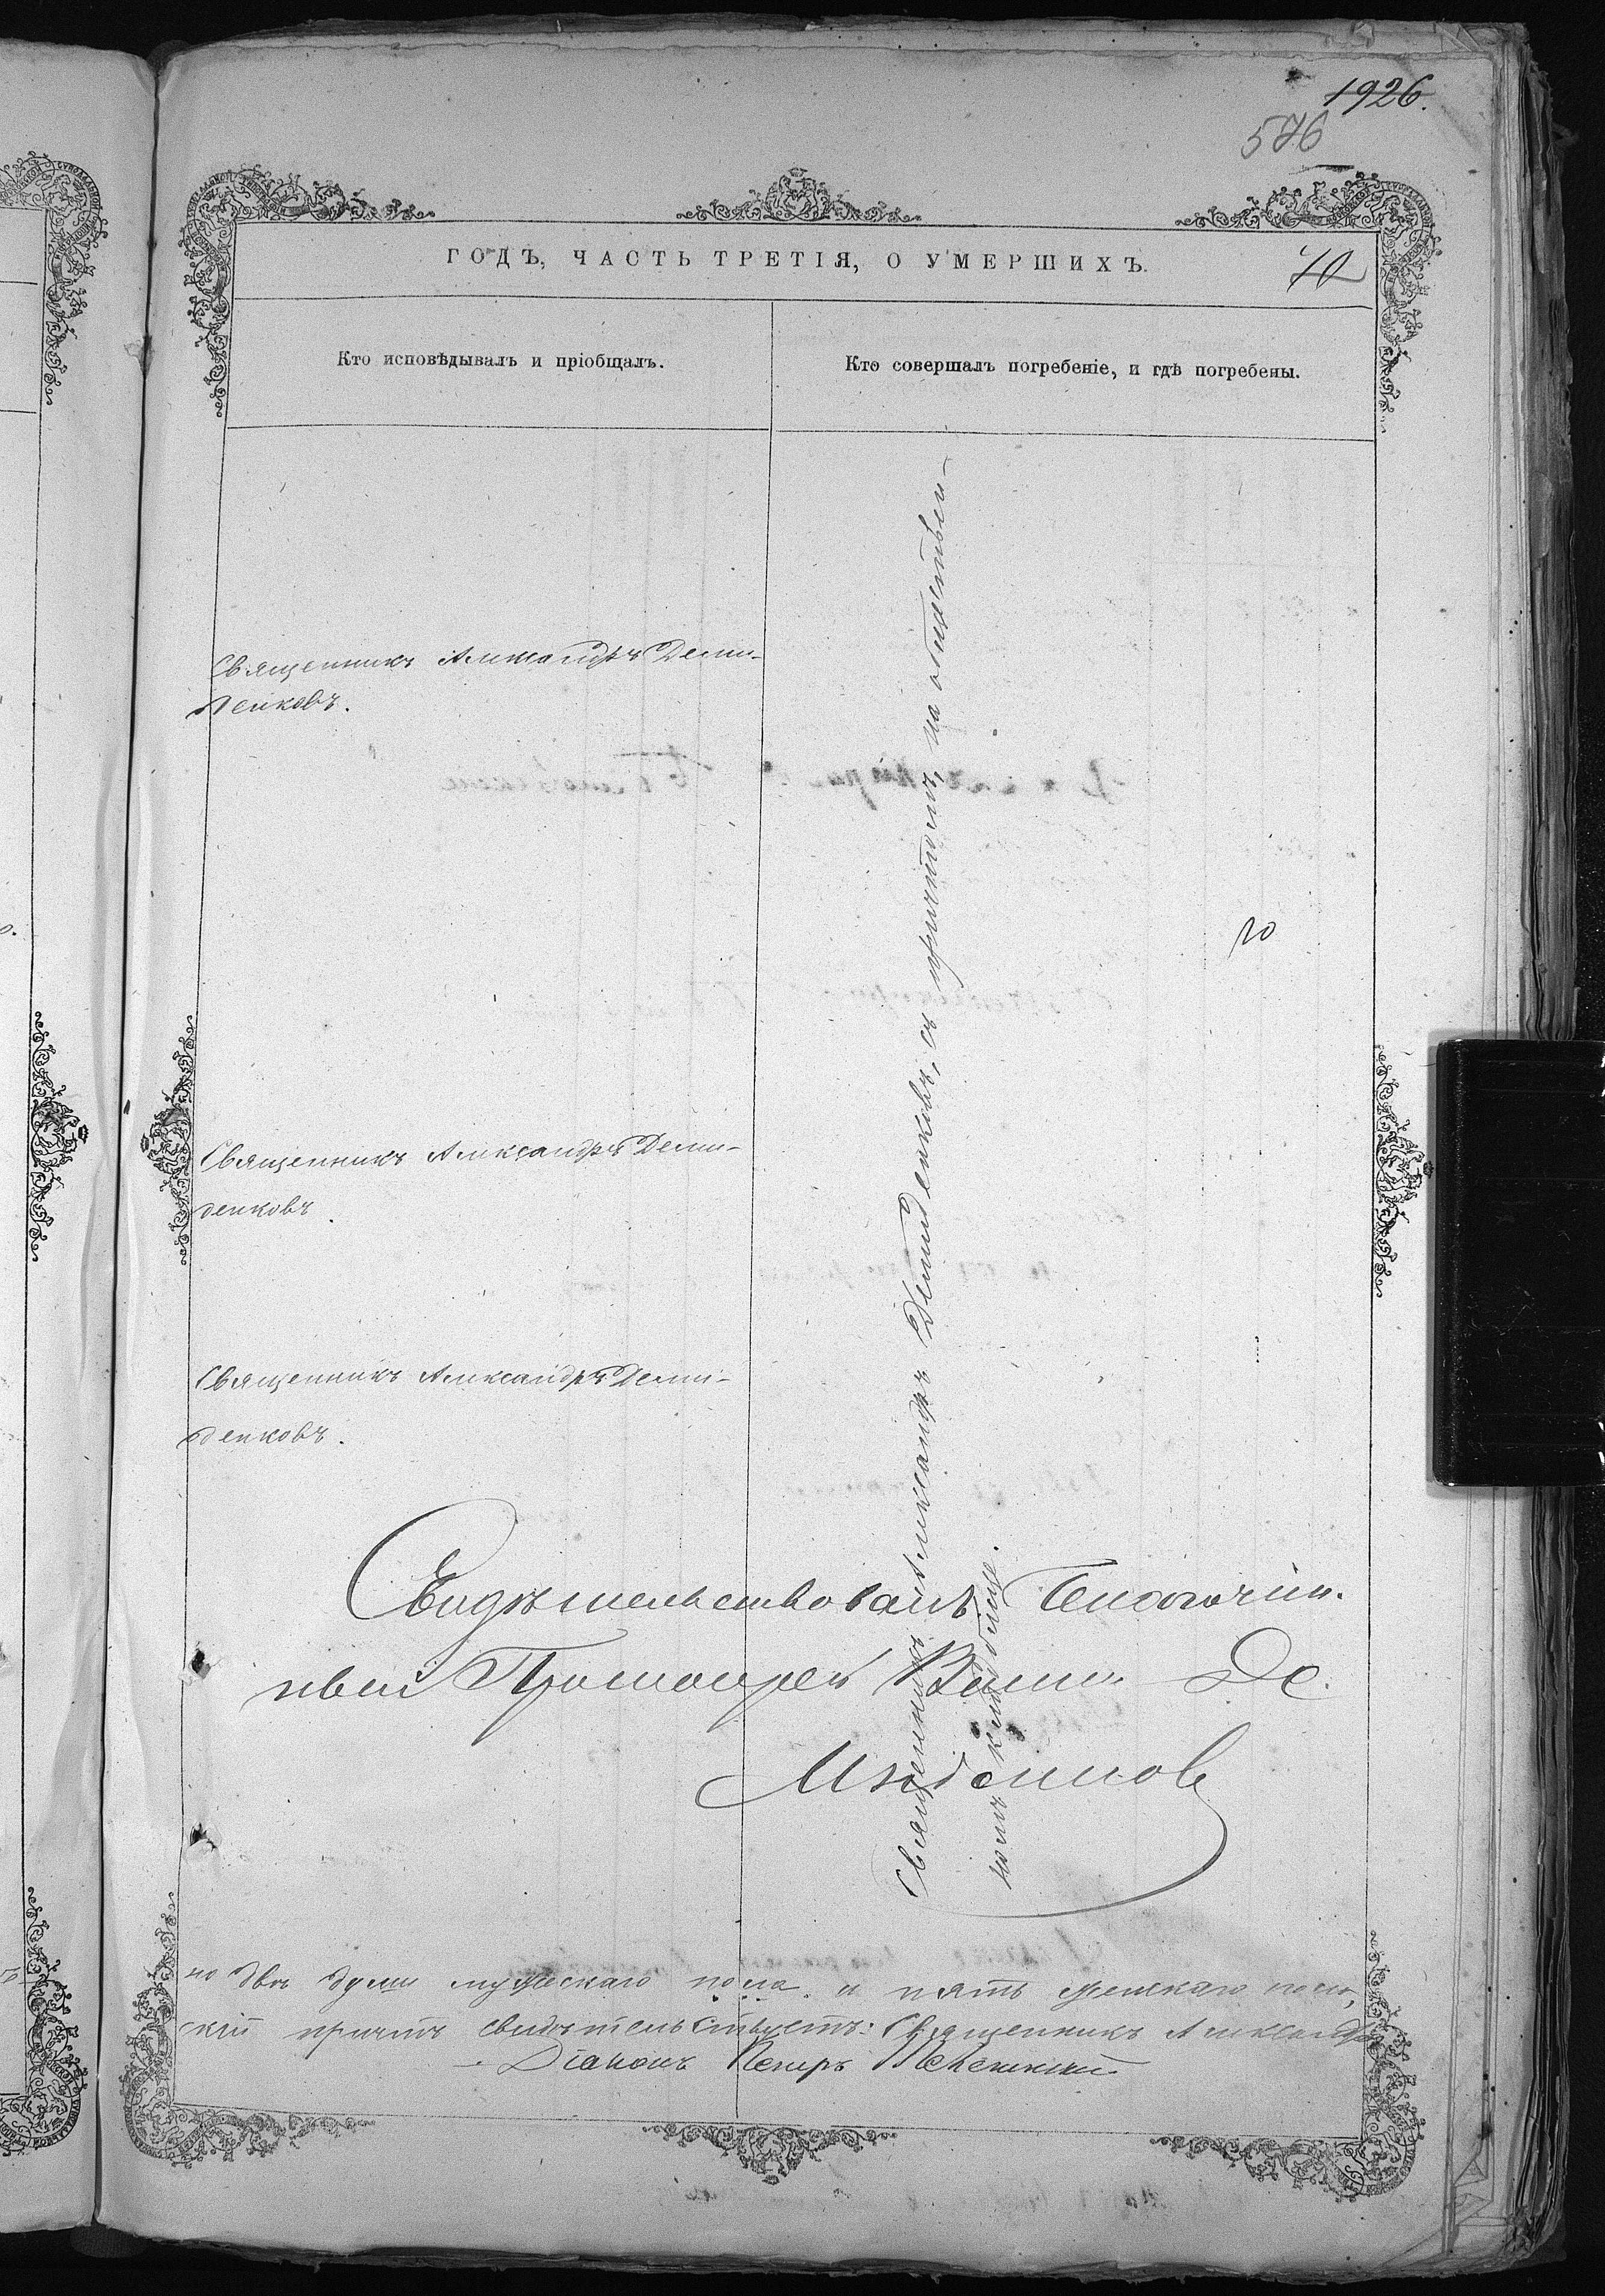 1926.
576
ГОДЪ, ЧАСТЬ ТРЕТІЯ, О УМЕРШИХЪ.
Кто исповѣдывалъ и пріобщалъ.
Кто совершалъ погребеніе, и гдѣ погребены.
Священникъ Александръ Деми-
денковъ.
Священникъ Александръ Деми-
денковъ.
Священникъ Александръ Деми-
денковъ.
Священникъ Александръ Демиденковъ, съ причтомъ, на общественн-
номъ кладбище.
Свидѣтельствовалъ Благочин-
ный Протоиерей
но двѣ души мужескаго пола и пять женскаго пола,
кій причтъ свидѣтельствуетъ: Священникъ Александръ
Діаконъ Петръ